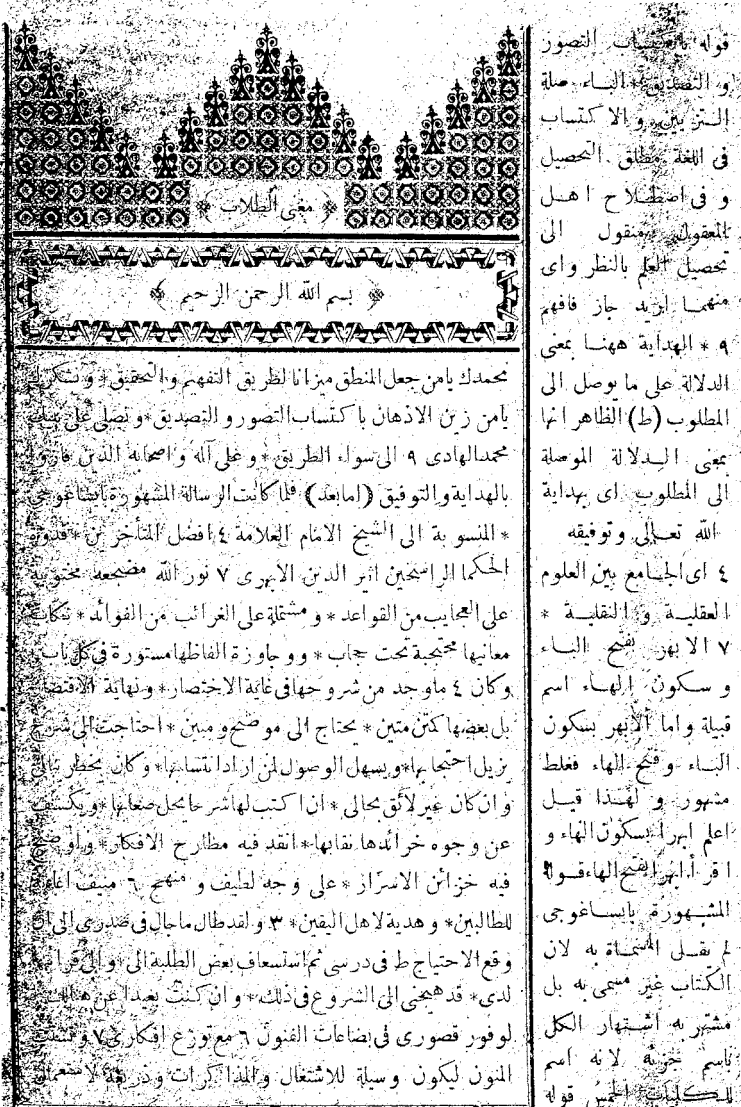 مغنى الطلاب
بسم الله الرحمن الرحيم
نحمدك يامن جعل المنطق ميزانا لطريق التفهيم والتحقيق * ونشكرك
يامن زين الاذهان باكتساب التصور و التصديق * ونصلى على نبيك
محمد الهادى ٩ الى سواء الطريق * و على آله و اصحابه الذين فازوا
بالهداية و التوفيق (امابعد) فلما كانت الرسالة المشهورة بايساغوجى
* المنسوبة الى الشيخ الامام العلامة ٤ افضل المتأخرين * قدوة
الحكما الراسخين اثير الدين الابهرى ٧ نور الله مضجعه محتوية
على العجايب من القواعد * و مشتملة على الغرائب من الفوائد *
معانيها محتجبة تحت حجاب * و وجاوزة الفاظها مستورة فى كل باب
وكان ٤ ماوجد من شروحها فى غاية الاختصار * و نهاية الاقتصار
بل بعضها كمتن متين * يحتاج الى موضح و مبين * احتاجت الى شرح
يزيل احتجابها * و يسهل الوصول لمن اراد انتسابها * وكان يخطر ببالى
و ان كان غير لائق بحالى * ان اكتب لها شرحا يحل صعابها * و يكشف
عن وجوه خرائدها نقابها * انقد فيه مطارح الافكار * و اوضح
فيه خزائن الاسرار * على وجه لطيف و منهج ٦ منيف
للطالبين * و هدية لاهل اليقين * ٣ و لقد طال ماجال فى صدرى الى ان
وقع الاحتياج ط فى درسى ثم استسعاف بعض الطلبة الى * و الى
لدى * قد هيجنى الى الشروع فى ذلك * و ان كنت بعيدا عن
لوفور قصورى فى بضاعات الفنون ٦ مع توزع افكارى ٧
المنون ليكون وسيلة للاشتغال و المذاكرات و ذريعة
قوله باكتساب التصور
و التصديق * الباء صلة
التزيين و الاكتساب
فى اللغة مطلق التحصيل
و فى اصطلاح اهل
المعقول منقول الى
تحصيل العلم بالنظر و اى
منهما اريد جاز فافهم
٩ * الهداية ههنا بمعنى
الدلالة على ما يوصل الى
المطلوب (ط) الظاهر انها
بمعنى الدلالة الموصلة
الى المطلوب اى بهداية
الله تعالى و توفيقه
٤ اى الجامع بين العلوم
العقلية و النقلية *
٧ الابهر بفتح الباء
و سكون الهاء اسم
قبيلة و اما الابهر بسكون
الباء و فتح الهاء فغلط
مشهور و لهذا قيل
اعلم ابهرا بسكون الهاء و
اقرأ ابهر بفتح الهاء قوله
المشهورة بايساغوجى
لم يقل المسماة به لان
الكتاب غير مسمى به بل
مشتهر به اشتهار الكل
باسم جزئه لانه اسم
للكليات الخمس قوله